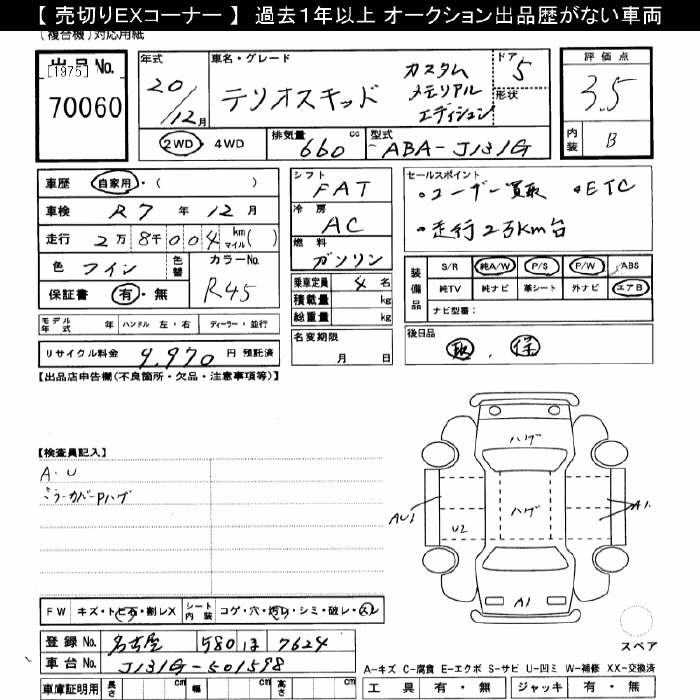 【 売切りEXコーナー 】 過去１年以上 オークション出品歴がない車両
(複合機)対応用紙
出品No.
[1975]
70060
年式
20/12月
車名・グレード
テリオスキッド
カスタム
メモリアル
エディション
ドア 5
形状
評価点
3.5
内装 B
2WD ・ 4WD
排気量 660 cc
型式 ABA-J131G
車歴 自家用・( )
車検 R7 年 12 月
走行 2万 8千 0 0 4 km マイル( )
色 ワイン
色替
カラーNo. R45
保証書 有・無
シフト FAT
冷房 AC
燃料 ガソリン
乗車定員 4 名
積載量 kg
総重量 kg
セールスポイント
・ユーザー買取 ・ETC
・走行2万km台
装備品
S/R 純A/W P/S P/W ABS
純TV 純ナビ 革シート 外ナビ エアB
ナビ型番:
モデル年式 年 ハンドル 左・右 ディーラー・並行
リサイクル料金 9,970 円 預託済
名変期限
月 日
後日品
取 . 保
【出品店申告欄(不良箇所・欠品・注意事項等)】
【検査員記入】
A・U
ミラーカバーPハゲ
ハゲ
ハゲ
AU1
U2
A1.
A1
FW キズ・トビ石・割レX
シート内装 コゲ・穴・汚レ・シミ・破レ・スレ
登録 No. 名古屋 580 ほ 7624
車台 No. J131G-501598
車庫証明用 長さ cm 幅 cm 高さ cm
スペア
A-キズ C-腐食 E-エクボ S-サビ U-凹ミ W-補修 XX-交換済
工具 有・無 ジャッキ 有・無